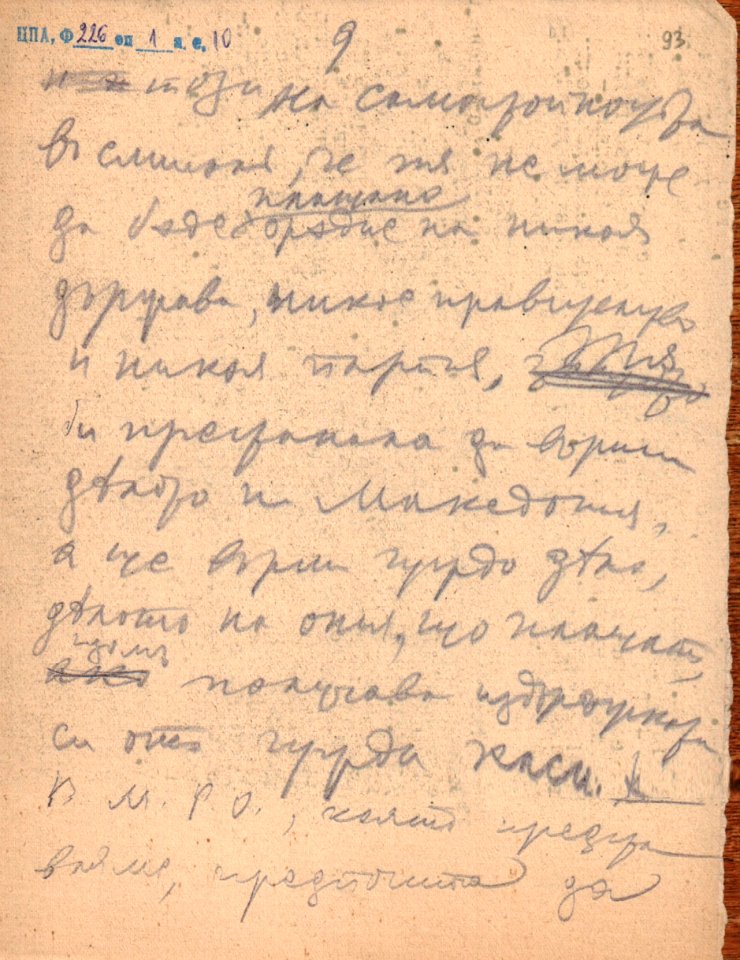 ЦПА, Ф 226 оп 1 а. е. 10
9
93
този на самостойностьта
въ смисъла, че тя не може
плащано
да бѫде орѫдие на никоя
държава, никое правителство
и никоя партия,
би престанала да върши
дѣлото на Македония,
а ще върши чуждо дѣло,
дѣлото на ония, що плащатъ,
щомъ
ако получава издръжката
си отъ чужди каси.
В. М. Р. О., която предста
вяме, предпочита да